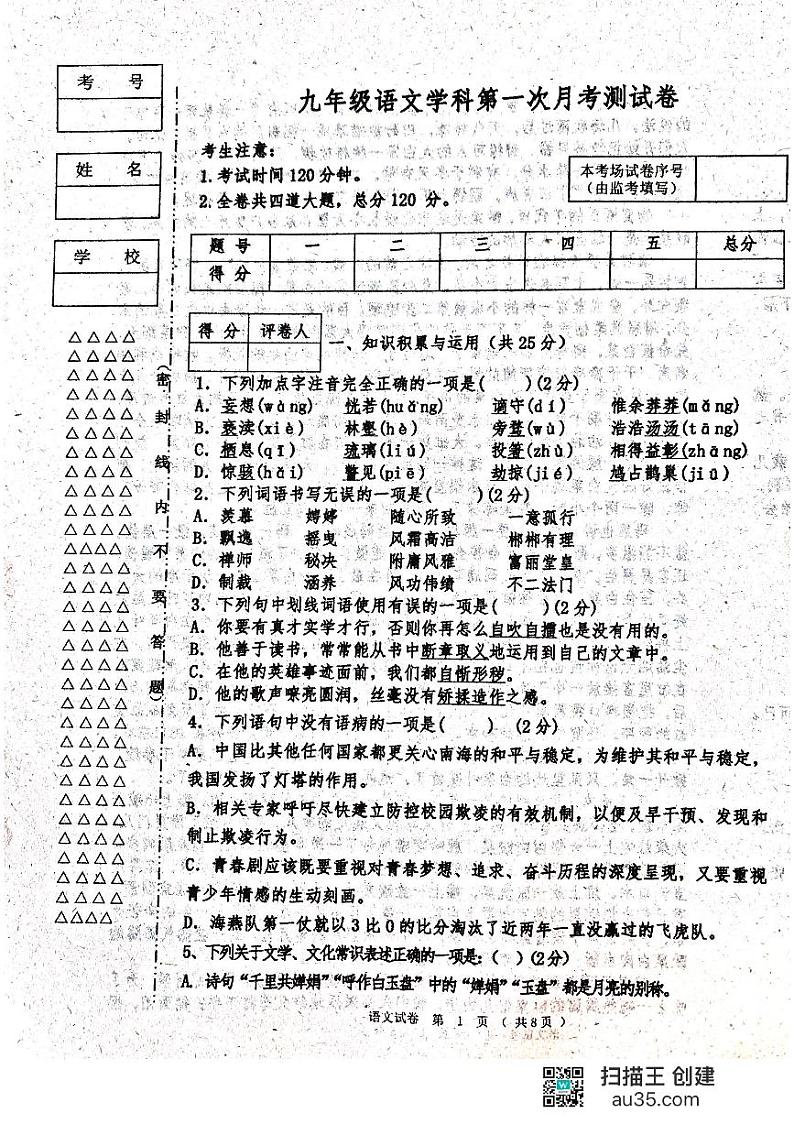 考 号
姓 名
学 校
密 封 线 内 不 要 答 题
九年级语文学科第一次月考测试卷
考生注意：
1.考试时间120分钟。
2.全卷共四道大题，总分120 分。
本考场试卷序号
（由监考填写）
题 号 一 二 三 四 五 总分
得 分
得 分 评卷人
一、知识积累与运用（共25分）
1．下列加点字注音完全正确的一项是( )(2分)
A．妄想(wàng) 恍若(huǎng) 谪守(dí) 惟余莽莽(mǎng)
B．亵渎(xiè) 林壑(hè) 旁骛(wù) 浩浩汤汤(tāng)
C．栖息(qī) 琉璃(liú) 投箸(zhù) 相得益彰(zhāng)
D．惊骇(hǎi) 瞥见(piē) 劫掠(jié) 鸠占鹊巢(jiū)
2．下列词语书写无误的一项是( )(2分)
A．羡慕 娉婷 随心所致 一意孤行
B．飘逸 摇曳 风霜高洁 郴郴有理
C．禅师 秘决 附庸风雅 富丽堂皇
D．制裁 涵养 风功伟绩 不二法门
3．下列句中划线词语使用有误的一项是( )(2分)
A．你要有真才实学才行，否则你再怎么自吹自擂也是没有用的。
B．他善于读书，常常能从书中断章取义地运用到自己的文章中。
C．在他的英雄事迹面前，我们都自惭形秽。
D．他的歌声嘹亮圆润，丝毫没有矫揉造作之感。
4．下列语句中没有语病的一项是( ) (2分)
A．中国比其他任何国家都更关心南海的和平与稳定，为维护其和平与稳定，
我国发扬了灯塔的作用。
B．相关专家呼吁尽快建立防控校园欺凌的有效机制，以便及早干预、发现和
制止欺凌行为。
C．青春剧应该既要重视对青春梦想、追求、奋斗历程的深度呈现，又要重视
青少年情感的生动刻画。
D．海燕队第一仗就以3比0的比分淘汰了近两年一直没赢过的飞虎队。
5、下列关于文学、文化常识表述正确的一项是：( )(2分)
A. 诗句“千里共婵娟”“呼作白玉盘”中的“婵娟”“玉盘”都是月亮的别称。
语文试卷 第 1 页（共8页）
扫描王 创建
au35.com